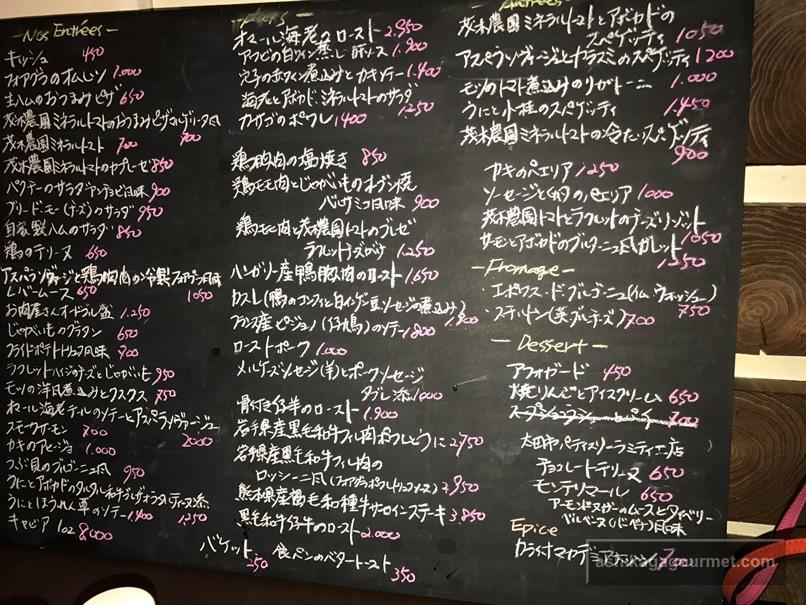 -Nos Entrées-
キッシュ 450
フォアグラのオムレツ 1.000
生ハムのおつまみピザ 650
茂木農園ミネラルトマトのおつまみピザマルゲリータ風 900
茂木農園ミネラルトマト 700
茂木農園ミネラルトマトのカプレーゼ 850
パクチーのサラダアンチョビ風味 900
ブリードモー(チーズ)のサラダ 950
自家製ハムのサラダ 850
鶏のテリーヌ 650
アスペランソヴァージュと鶏胸肉の冷製フォアグラ風味 1050
レバームース 650
お肉屋さんオードブル盛 1.250
じゃがいものグラタン 650
フライドポテトトリュフ風味 900
ラクレット(ハイジのチーズ)とじゃがいも 950
モツの洋風煮込みとクスクス 750
オマール海老テールのソテーとアスペランソヴァージュ 2000
スモークサーモン 700
カキのアヒージョ 1.000
つぶ貝のブルゴーニュ風 950
うにとアボカドのタルタル和牛 添 1250
うにとほうれん草のソテー 1.400
キャビア 1oz 8000
オマール海老のロースト 2.950
アワビの白ワイン蒸し 肝ソース 1.900
穴子の赤ワイン煮込みとカキソテー 1.400
海老とアボカド、ミネラルトマトのサラダ 1250
カサゴのポワレ 1400
鶏胸肉の塩焼き 850
鶏モモ肉とじゃがいものオーブン焼
バルサミコ風味 900
鶏モモ肉と茂木農園トマトのブレゼ
ラクレットチーズがけ 1.250
ハンガリー産鴨胸肉のロースト 1.650
カスレ(鴨のコンフィと白インゲン豆、ソーセージの煮込み) 1.900
フランス産ピジョン(仔鳩)のソテー 1800
ローストポーク 1.000
メルゲーズソーセージ(羊)とポークソーセージ
ダブル添 1000
骨付き仔羊のロースト 1.900
岩手県産黒毛和牛フィレ肉ポワレうに 2750
岩手県産黒毛和牛フィレ肉の
ロッシーニ風(フォアグラポワレトリュフソース) 2.950
熊本県産褐毛和種牛サーロインステキ 3.850
黒毛和牛仔牛のロースト 2.000
バゲット 250
食パンのバタートースト 350
茂木農園ミネラルトマトとアボカドの
スペゲッティ 1050
アスペランソヴァージュとカラスミのスペゲッティ 1200
モツのトマト煮込みのリガトーニ 1.000
うにと小柱のスペゲッティ 1.450
茂木農園ミネラルトマトの冷たいスパゲッティ 900
カキのパエリア 1250
ソーセージと卵のパエリア 1000
茂木農園トマトとラクレットのチーズリゾット 1050
サーモンとアボカドのブルターニュ風ガレット 1250
-Fromage-
・エポワス・ド・ブルゴーニュ(仏、ウォッシュ) 750
・スティルトン(英ブルーチーズ) 700
-Dessert-
アフォガード 450
焼りんごとアイスクリーム 650
700
太田市パティスリーラミティエ店
チョコレートテリーヌ 650
モンテリマール 650
アーモンドヌガーのムースとタイベリー
バルベーヌ(バーベナ)風味
Epice
カライナマカデミアナッツ 700
ashikagagourmet.com